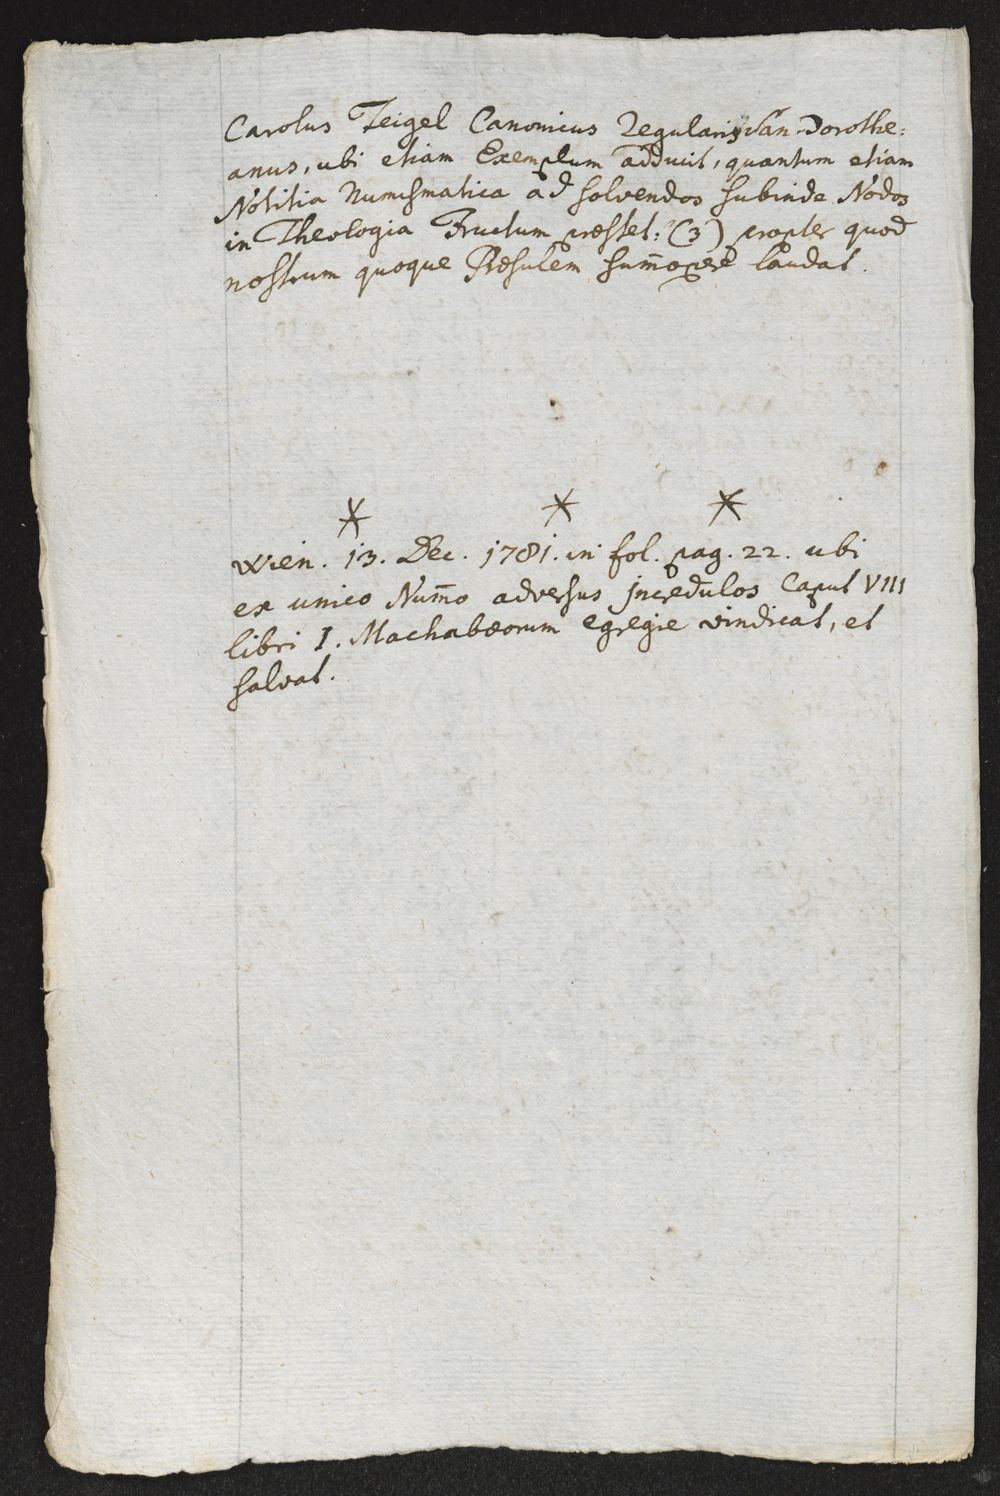 Carolus Feigel Canonicus Regularis San-Dorothe=
anus, ubi etiam Exemplum adducit, quantum etiam
Notitia Numismatica ad solvendos subinde Nodos
in Theologia Fructum præstet: (3) propter quod
nostrum quoque Præsulem sum̄opere laudat.
* * *
Wien. 13. Dec. 1781. in fol. pag. 22. ubi
ex unico Num̄o adversus jncredulos Caput VIII
libri I. Machabæorum egregie vindicat, et
salvat.